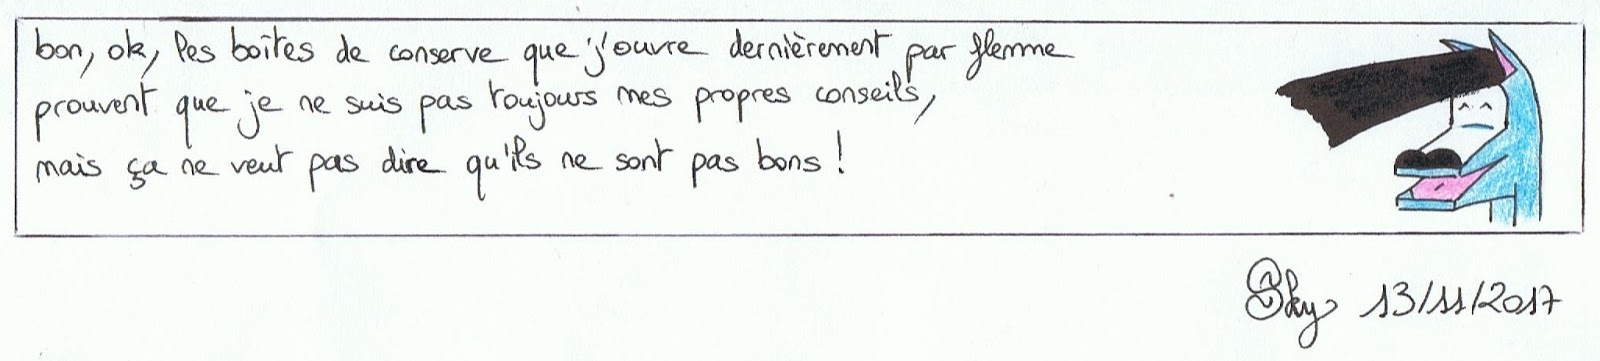 bon, ok, les boîtes de conserve que j'ouvre dernièrement par flemme
prouvent que je ne suis pas toujours mes propres conseils,
mais ça ne veut pas dire qu'ils ne sont pas bons !
Sky 13/11/2017